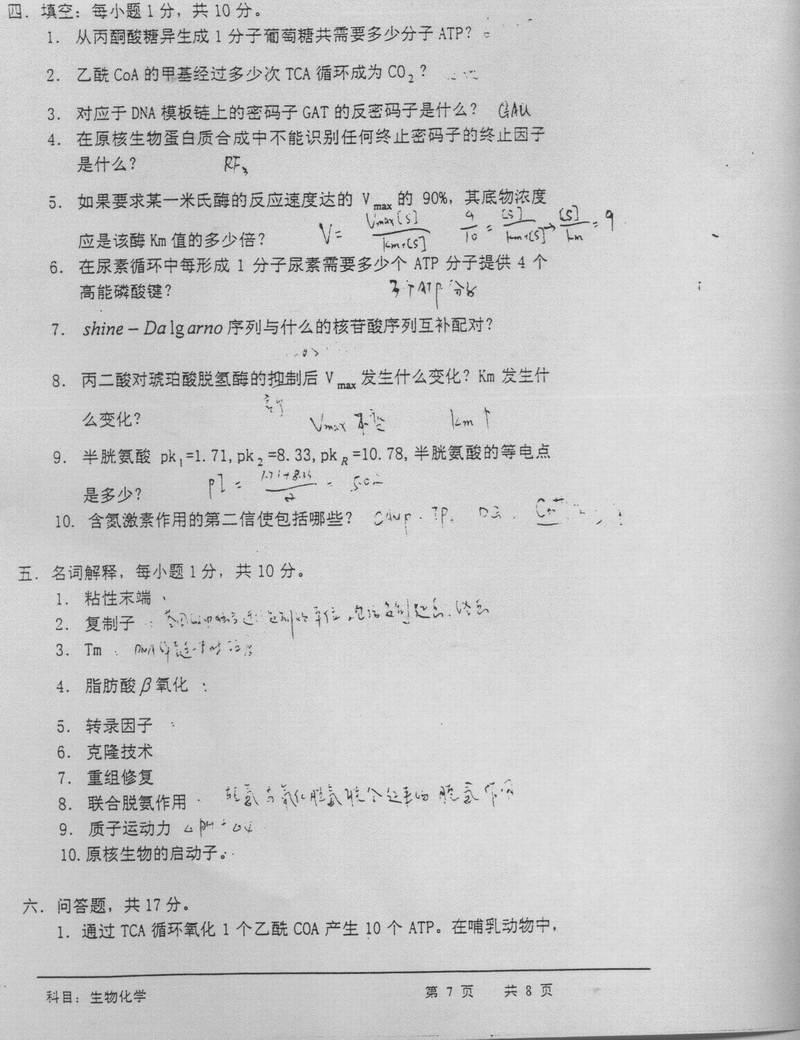 四．填空：每小题1分，共10分。
1. 从丙酮酸糖异生成1分子葡萄糖共需要多少分子ATP？
2. 乙酰CoA的甲基经过多少次TCA循环成为CO₂？
3. 对应于DNA模板链上的密码子GAT的反密码子是什么？ GAU
4. 在原核生物蛋白质合成中不能识别任何终止密码子的终止因子
是什么？ RF₃
5. 如果要求某一米氏酶的反应速度达的 Vmax 的 90%，其底物浓度
应是该酶Km值的多少倍？ V= Vmax[S]/km+[S] 9/10 = [S]/km+[S] → [S]/km = 9
6. 在尿素循环中每形成 1 分子尿素需要多少个 ATP 分子提供 4 个
高能磷酸键？ 3个ATP分子
7. shine－Dalgarno 序列与什么的核苷酸序列互补配对？
8. 丙二酸对琥珀酸脱氢酶的抑制后 Vmax 发生什么变化？Km 发生什
竞争
么变化？ Vmax 不变 km ↑
9. 半胱氨酸 pk₁=1.71, pk₂=8.33, pk_R=10.78, 半胱氨酸的等电点
是多少？ pI =
10. 含氮激素作用的第二信使包括哪些？
五．名词解释，每小题1分，共10分。
1. 粘性末端
2. 复制子
3. Tm
4. 脂肪酸β氧化
5. 转录因子
6. 克隆技术
7. 重组修复
8. 联合脱氨作用
9. 质子运动力
10. 原核生物的启动子。
六．问答题，共17分。
1. 通过TCA循环氧化1个乙酰COA产生10个ATP。在哺乳动物中，
科目：生物化学 第 7 页 共 8 页